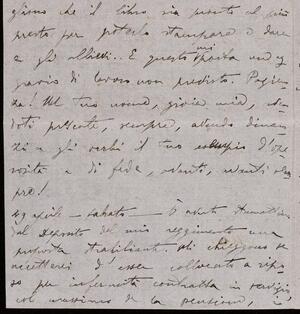 che il libro sia pronto al più
presto per poterlo stampare e dare
a gli allievi.. E questo mi porta un ag
gravio di lavoro non previsto. Pazien
za! Nel tuo nome, gioia mia, aven
doti presente, sempre, avendo dinan
zi a gli occhi il tuo esempio d'ope
rosità e di fede, avanti, avanti sem
pre!
29 aprile — sabato — Ò avuto stamattina
dal deposito del mio reggimento una
proposta strabiliante. Mi chieggono se
accetterei d'esser collocato a ripo
so per infermità contratta in servizio
col massimo de la pensione, i